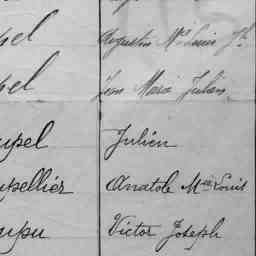 pel Augustin Mie Louis Jh
pel Jean Marie Julien
upel Julien
upellier Anatole Mie Louis
upu Victor Joseph